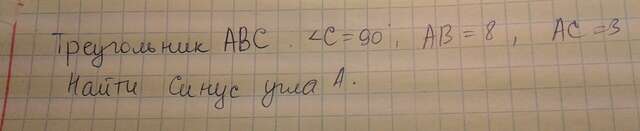 Треугольник ABC. ∠C=90°, AB=8, AC=3
Найти синус угла A.